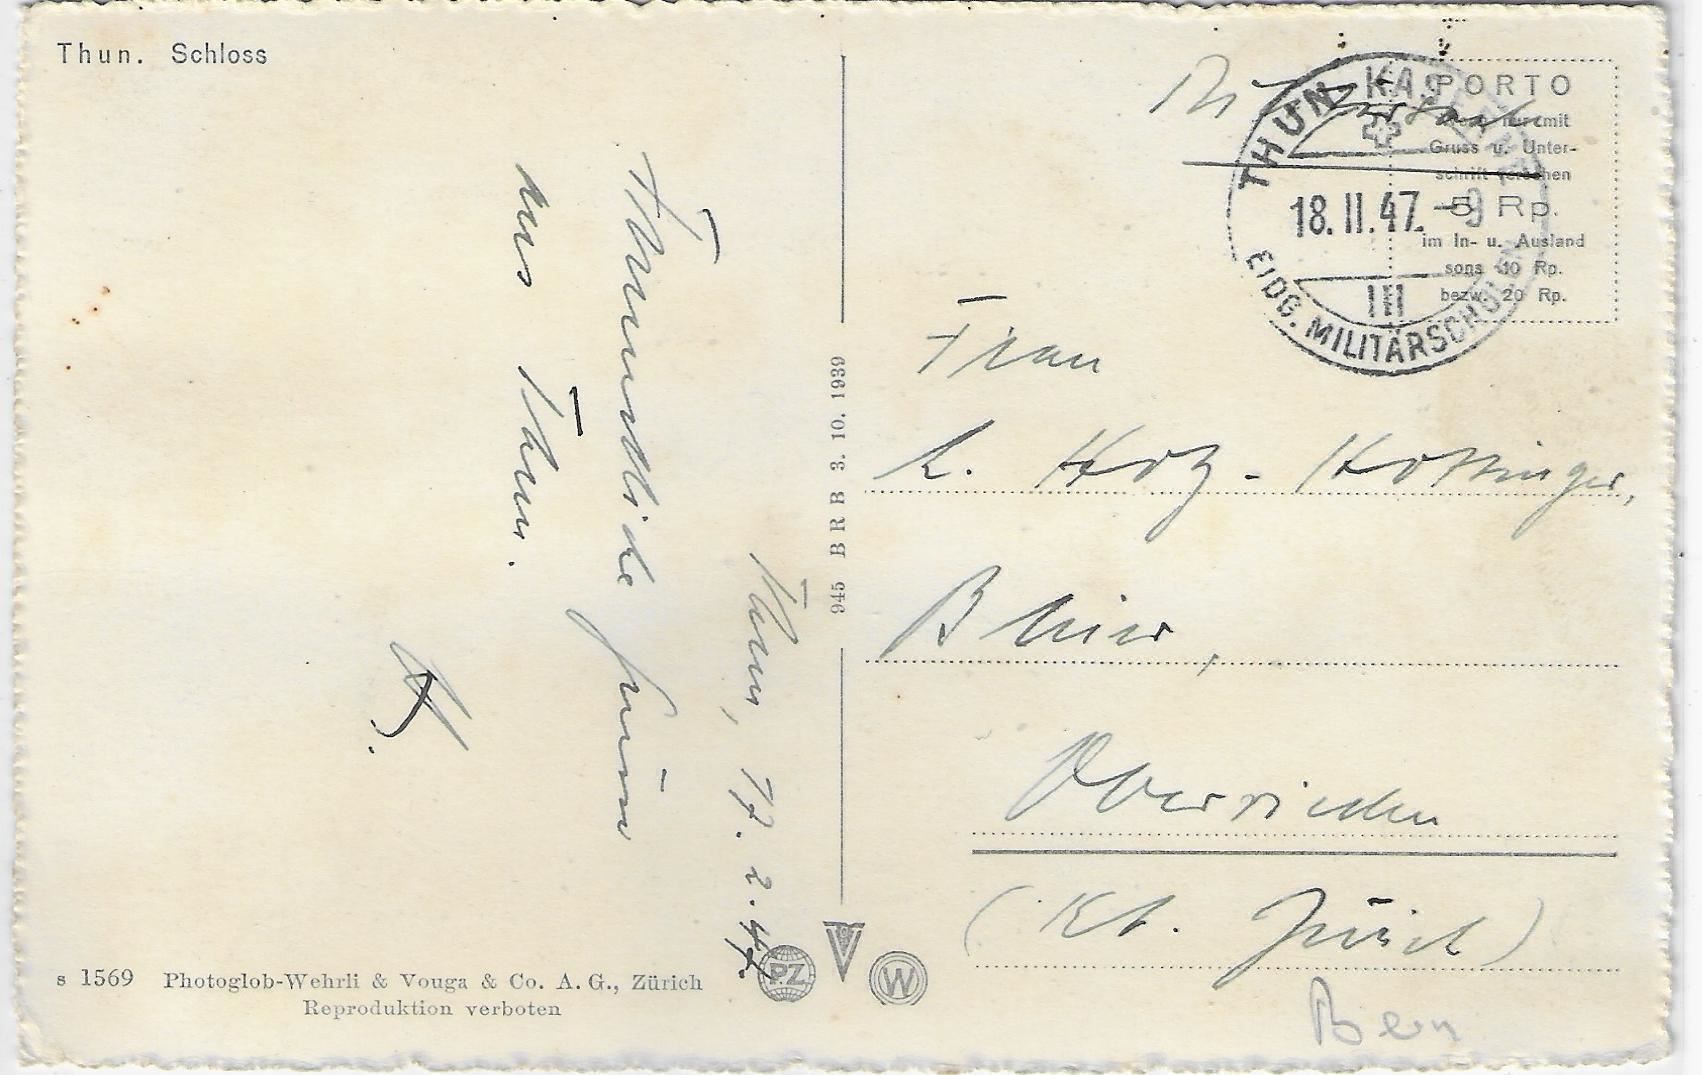 Thun. Schloss
Thun, 17. 2. 47.
Freundliche Grüsse
aus Thun.
H.
945 BRB 3. 10. 1939
s 1569 Photoglob-Wehrli & Vouga & Co. A. G., Zürich
Reproduktion verboten
PZ
W
PORTO
nur mit
Gruss u. Unter-
schrift versehen
5 Rp.
im In- u. Ausland
sons 10 Rp.
bezw. 20 Rp.
THUN KASERNE
18. II. 47. - 9
III
EIDG. MILITÄRSCHULEN
Frau
L. Hotz - Hottinger,
Oberrieden
(Kt. Zürich)
Bern